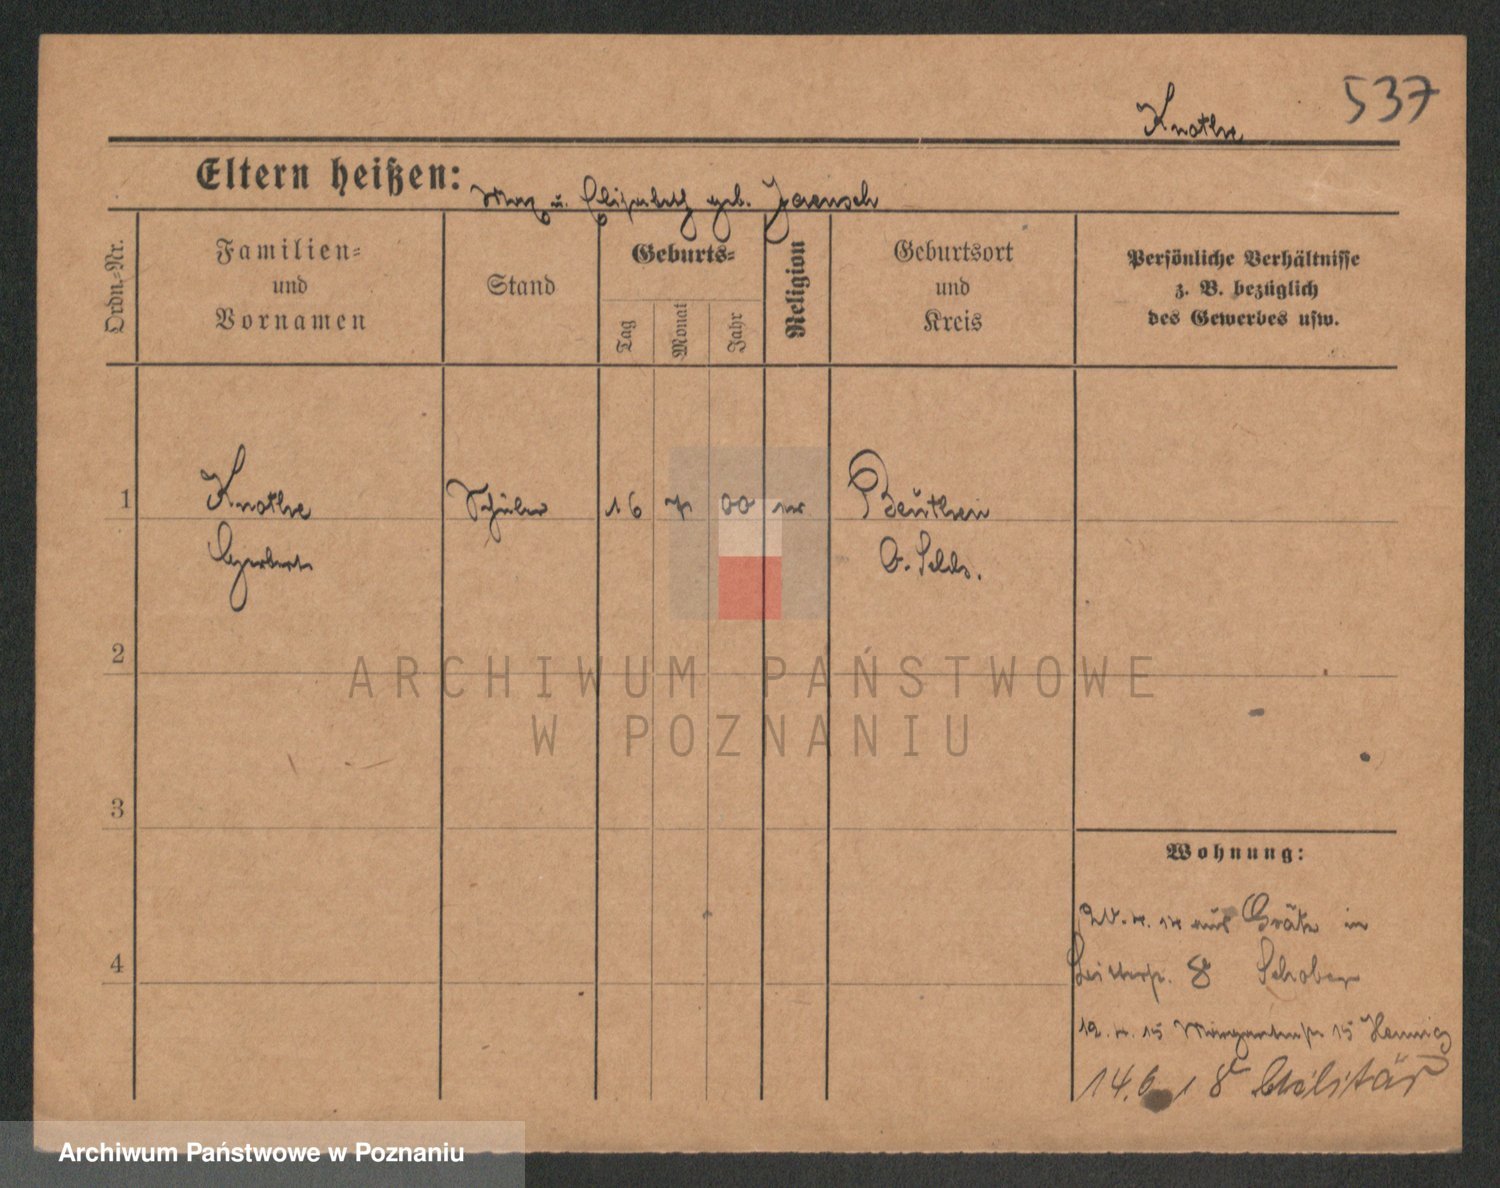 537
Knothe
Eltern heißen: Max u. Elisabeth geb. Jaensch
Ordn.-Nr.
Familien-
und
Vornamen
Stand
Geburts-
Tag
Monat
Jahr
Religion
Geburtsort
und
Kreis
Persönliche Verhältnisse
z. B. bezüglich
des Gewerbes usw.
1 Knothe Schüler 16 7 00 Beuthen
Herbert O. Schls.
2
ARCHIWUM PAŃSTWOWE
W POZNANIU
3
Wohnung:
aus Grätz in
4
8 Schober
15 15 Hennig
14.6.18 Militär
Archiwum Państwowe w Poznaniu